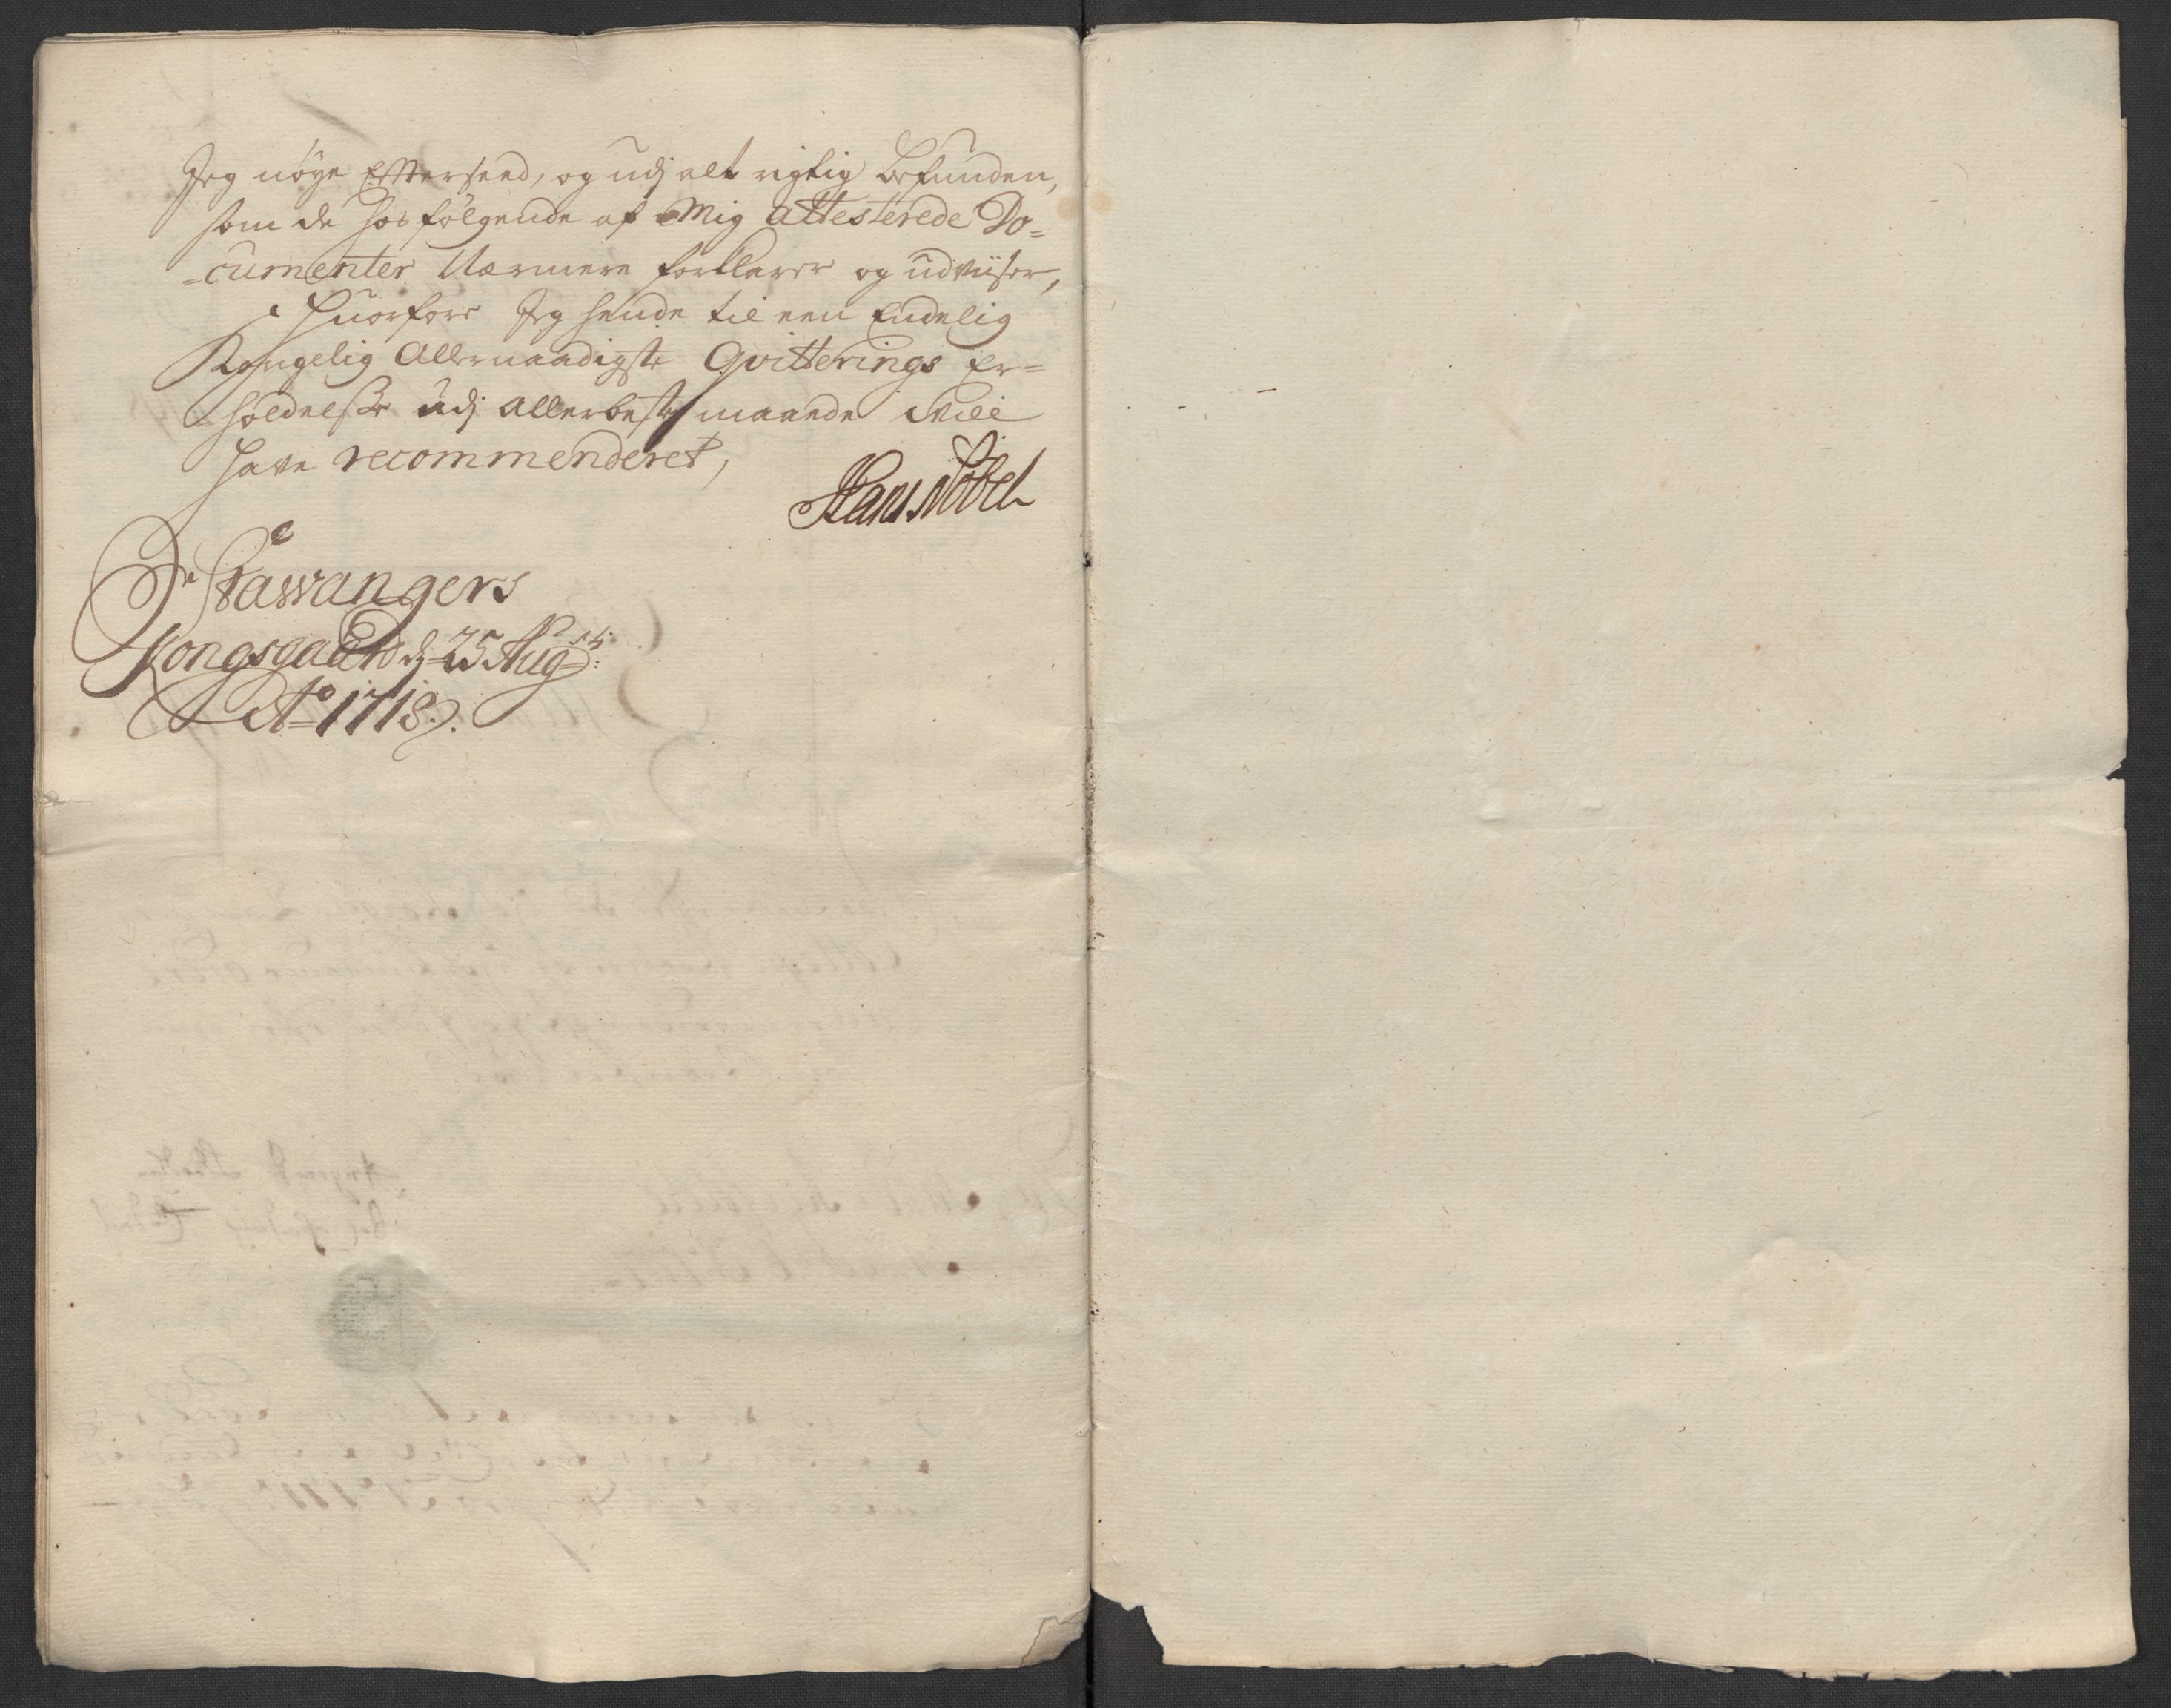 Jeg nøye Efterseed, og udj alt rigtig befunden,
som de hosfølgende af Mig attesterede Do=
=cumenter Nærmere forklarer og udviiser,
Huorfore Jeg hende til een Endelig
Kongelig Allernaadigste Qvitterings Er=
holdelsse udj allerbeste maaede vill
have recommenderet,
Hans Nobel
Stawangers
Kongsgaard d: 25 Augsti:
Ao 1718.